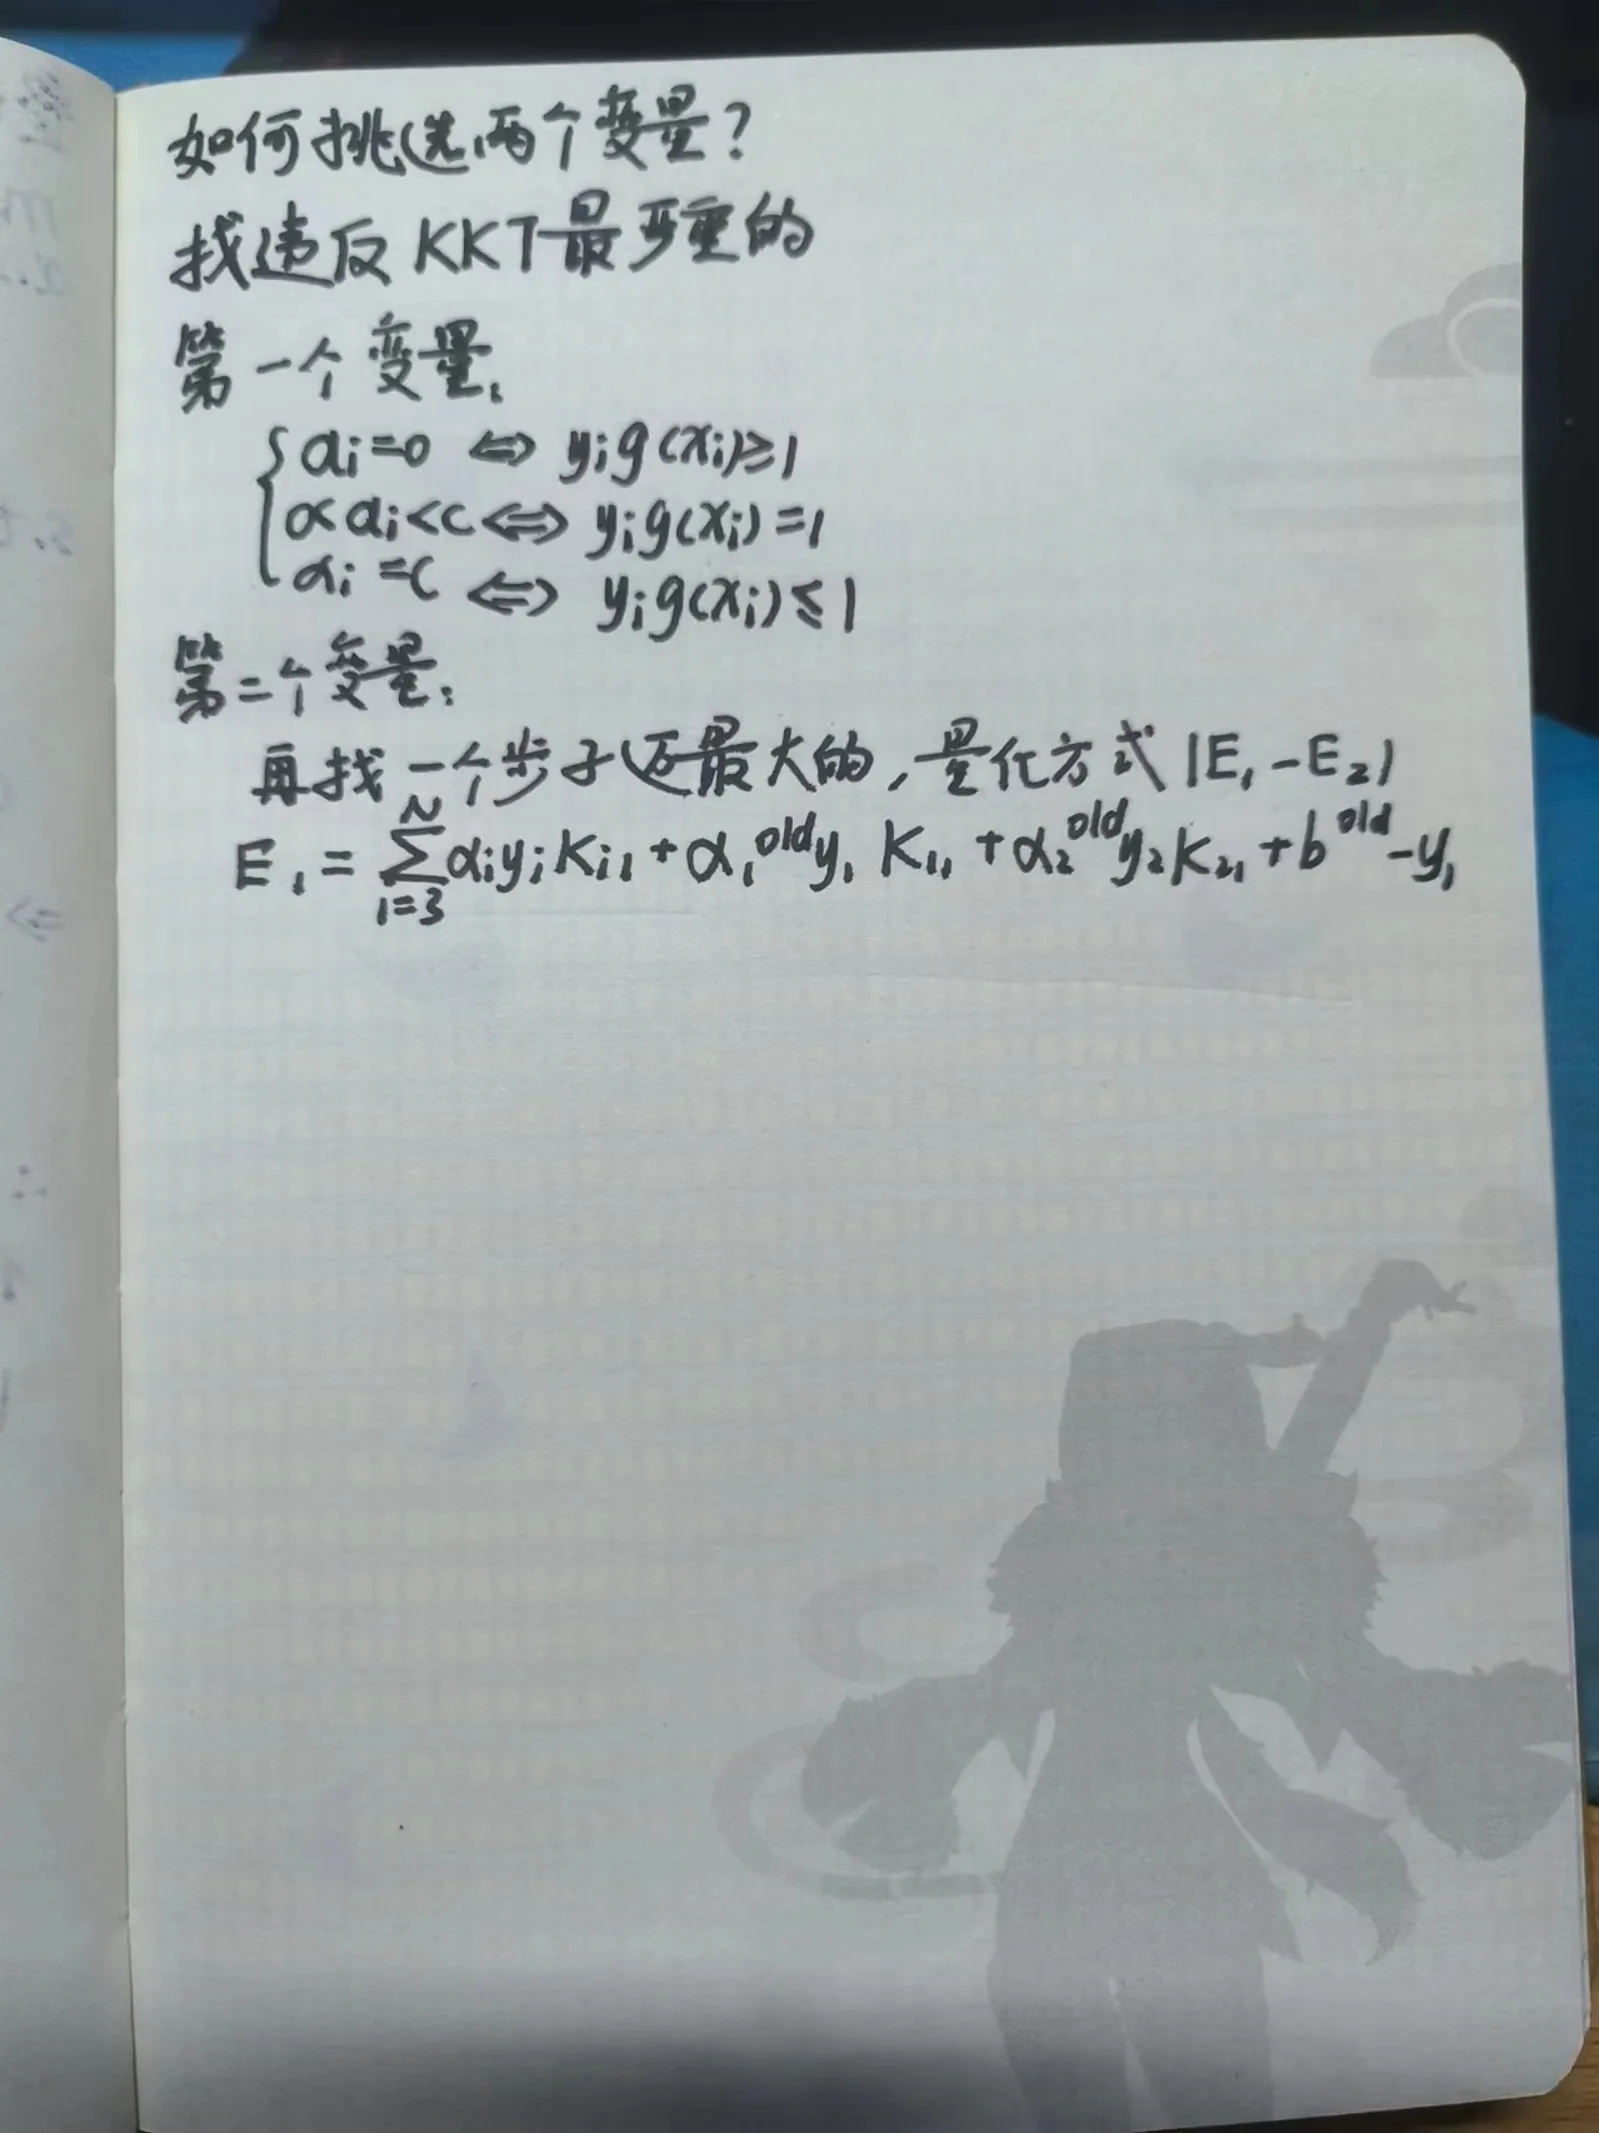 如何挑选两个变量?
找违反KKT最严重的
第一个变量:
αi=0 ⇔ yig(xi)≥1
0<αi<C ⇔ yig(xi)=1
αi=C ⇔ yig(xi)≤1
第二个变量:
再找一个步子迈最大的,量化方式|E₁-E₂|
E₁ = ∑ᵢ₌₃ᴺ αiyiKi₁ + α₁ᵒˡᵈy₁K₁₁ + α₂ᵒˡᵈy₂K₂₁ + bᵒˡᵈ - y₁